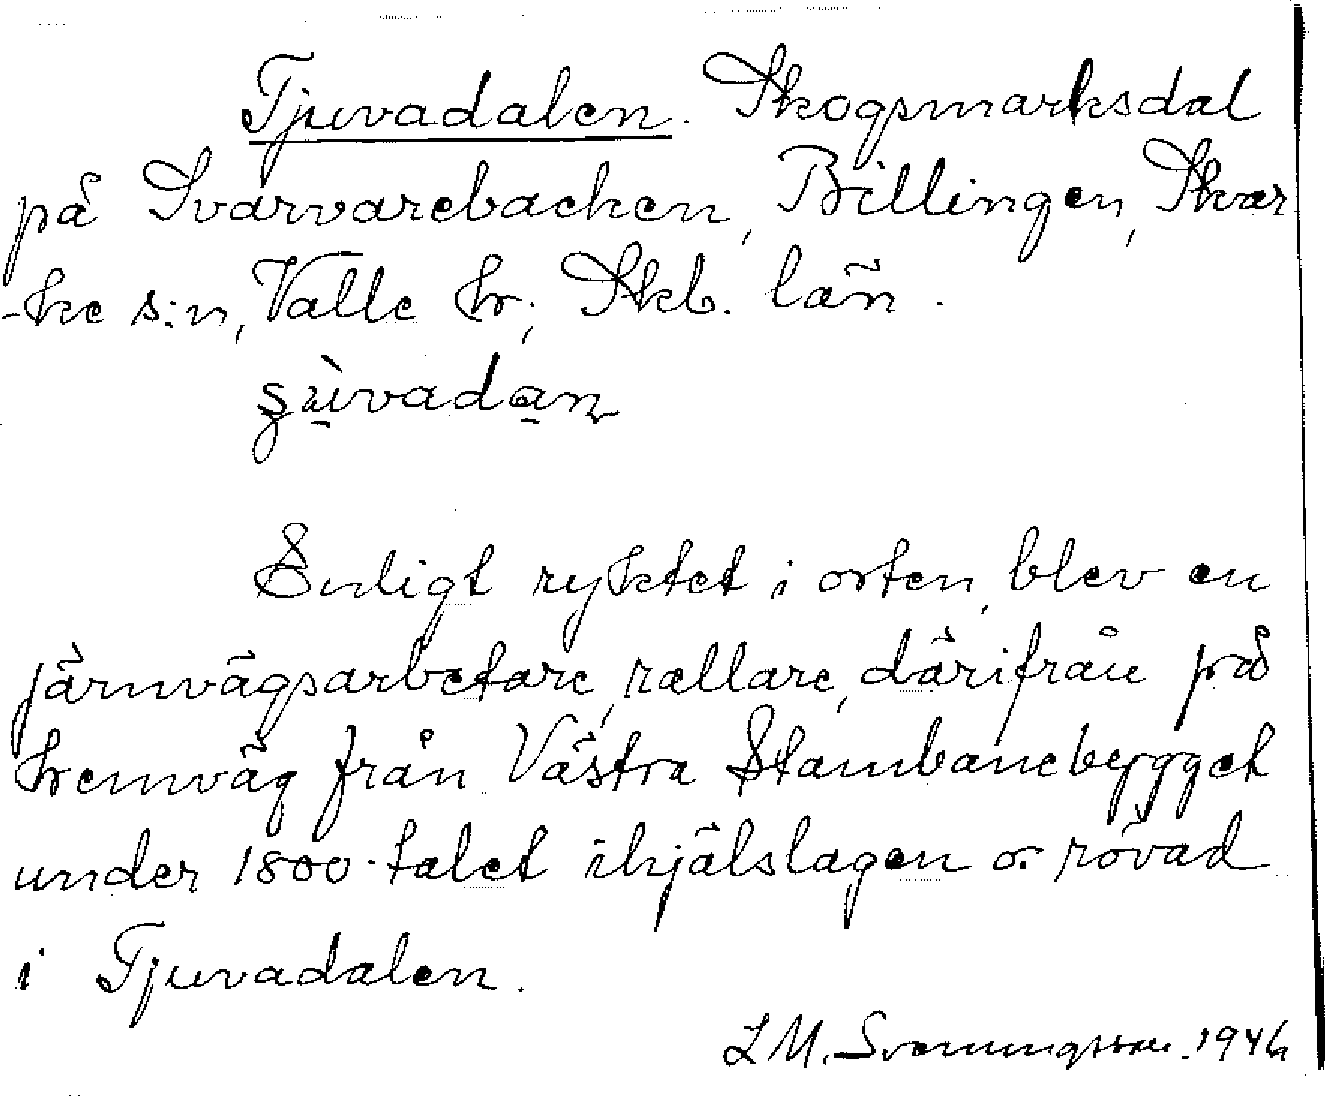 Tjuvadalen. Skogsmarksdal
på Svarvarebacken, Billingen, Skär
-ke s:n, Valle hr; Skb. län.
Enligt ryktet i orten, blev en
järnvägsarbetare, rallare, därifrån på
hemväg från Västra Stambanebygget
under 1800-talet ihjälslagen o. rövad
i Tjuvadalen.
L M. Svenungsson. 1946